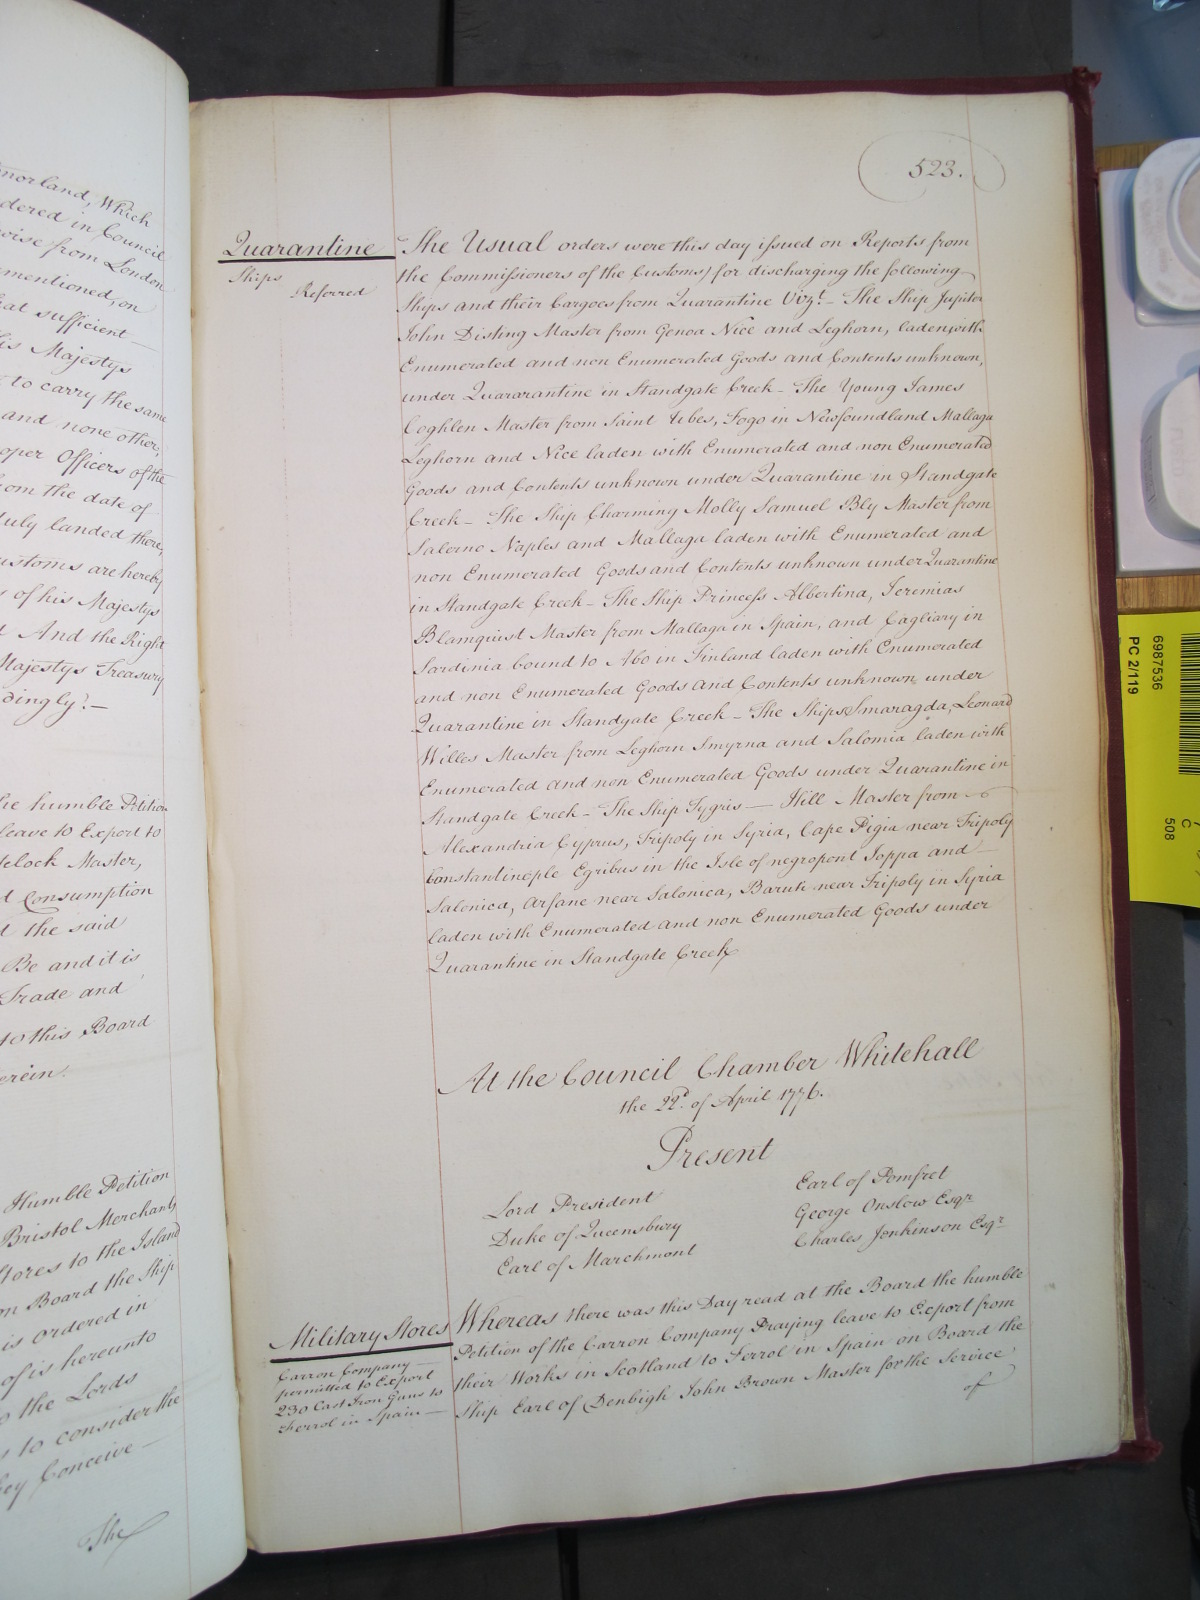 norland, Which
dered in Council
wise from London
mentioned, on
hat sufficient
is Majestys
to carry the same
and none other,
oper Officers of the
from the date of
duly landed there,
ustoms are hereby
s of his Majestys
And the Right
Majestys Treasury
dingly.—
he humble Petition
leave to Export to
elock Master,
d Consumption
t the said
Be and it is
Trade and
to this Board
erein.
Humble Petition
Bristol Merchants
Stores to the Island
on Board the Ship
is ordered in
of is hereunto
o the Lords
s to consider the
hey Conceive—
The
523.
Quarantine
Ships
Referred
The Usual orders were this day issued on Reports from
the Commissioners of the Customs for discharging the following
Ships and their Cargoes from Quarantine Vizt.— The Ship Jupiter
John Disting Master from Genoa Nice and Leghorn, laden with
Enumerated and non Enumerated Goods and Contents unknown,
under Quararantine in Standgate Creek— The Young James
Coghlen Master from Saint Ubes, Fogo in Newfoundland Mallaga
Leghorn and Nice laden with Enumerated and non Enumerated
Goods and Contents unknown under Quarantine in Standgate
Creek— The Ship Charming Molly Samuel Bly Master from
Salerno Naples and Mallaga laden with Enumerated and
non Enumerated Goods and Contents unknown under Quarantine
in Standgate Creek— The Ship Princess Albertina, Jeremias
Blamquist Master from Mallaga in Spain, and Cagliary in
Sardinia bound to Abo in Finland laden with Enumerated
and non Enumerated Goods and Contents unknown under
Quarantine in Standgate Creek— The Ships Smaragda, Leonard
Willes Master from Leghorn Smyrna and Salomia laden with
Enumerated and non Enumerated Goods under Quarantine in
Standgate Creek— The Ship Tygris — Hill Master from
Alexandria Cyprus, Tripoly in Syria, Cape Pigia near Tripoly
Constantinople Egribus in the Isle of negropont Joppa and —
Salonica, Arfane near Salonica, Baruti near Tripoly in Syria
laden with Enumerated and non Enumerated Goods under
Quarantine in Standgate Creek
At the Council Chamber Whitehall
the 22d. of April 1776.
Present
Lord President
Duke of Queensbury
Earl of Marchmont
Earl of Pomfret
George Onslow Esqr.
Charles Jenkinson Esqr.
Military Stores
Carron Company —
permitted to Export
230 Cast Iron Guns to
Ferrol in Spain —
Whereas there was this Day read at the Board the humble
Petition of the Carron Company Praying leave to Export from
their Works in Scotland to Ferrol in Spain on Board the
Ship Earl of Denbigh John Brown Master for the Service
of
6987536
PC 2/119
C
508